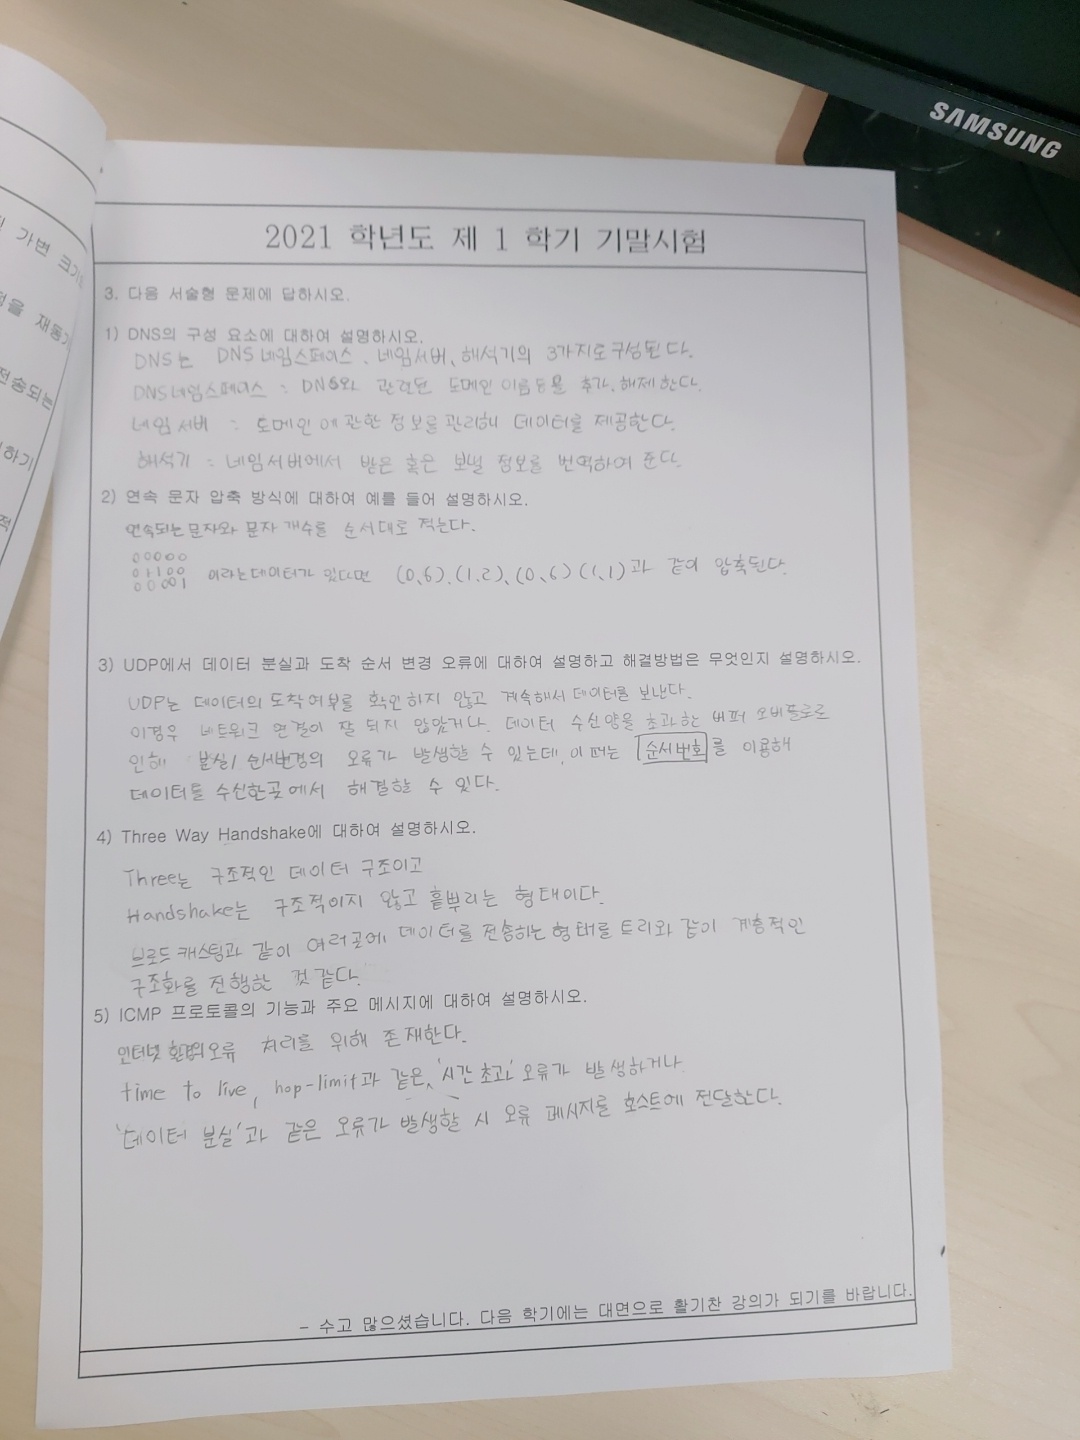 SAMSUNG
가변 크기
재동기
전송되는
하기
적
2021 학년도 제 1 학기 기말시험
3. 다음 서술형 문제에 답하시오.
1) DNS의 구성 요소에 대하여 설명하시오.
DNS는 DNS 네임스페이스, 네임서버, 해석기의 3가지로 구성된다.
DNS네임스페이스 : DNS와 관련된 도메인 이름등을 추가, 해제한다.
네임서버 : 도메인에 관한 정보를 관리해 데이터를 제공한다.
해석기 : 네임서버에서 받은 혹은 보낼 정보를 번역하여 준다.
2) 연속 문자 압축 방식에 대하여 예를 들어 설명하시오.
연속되는 문자와 문자 개수를 순서대로 적는다.
00000
01100 이라는 데이터가 있다면 (0,6), (1,2), (0,6) (1,1)과 같이 압축된다.
00001
3) UDP에서 데이터 분실과 도착 순서 변경 오류에 대하여 설명하고 해결방법은 무엇인지 설명하시오.
UDP는 데이터의 도착여부를 확인하지 않고 계속해서 데이터를 보낸다.
이경우 네트워크 연결이 잘 되지 않았거나, 데이터 수신양을 초과하는 버퍼 오버플로로
인해 분실/순서변경의 오류가 발생할 수 있는데, 이 때는 순서번호를 이용해
데이터를 수신한곳에서 해결할 수 있다.
4) Three Way Handshake에 대하여 설명하시오.
Three는 구조적인 데이터 구조이고
Handshake는 구조적이지 않고 흩뿌리는 형태이다.
브로드 캐스팅과 같이 여러곳에 데이터를 전송하는 형태를 트리와 같이 계층적인
구조화를 진행한 것 같다.
5) ICMP 프로토콜의 기능과 주요 메시지에 대하여 설명하시오.
인터넷 환경의 오류 처리를 위해 존재한다.
time to live, hop-limit과 같은, '시간 초과' 오류가 발생하거나
'데이터 분실'과 같은 오류가 발생할 시 오류 메시지를 호스트에 전달한다.
- 수고 많으셨습니다. 다음 학기에는 대면으로 활기찬 강의가 되기를 바랍니다.